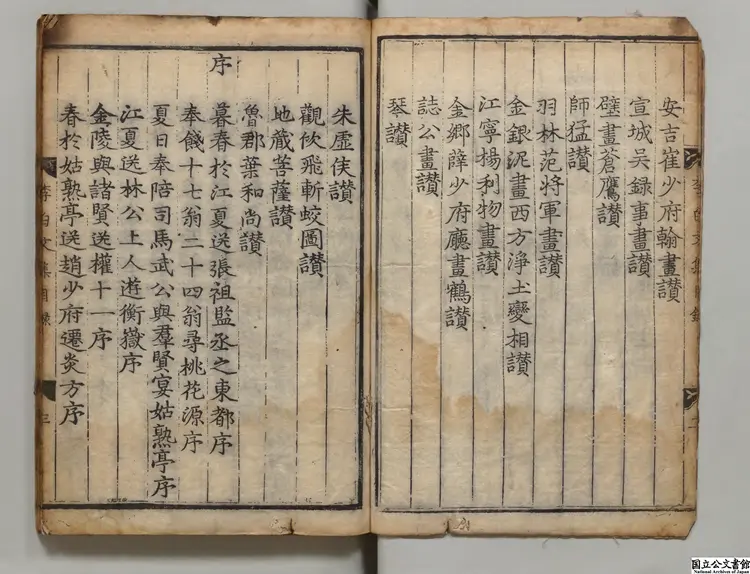 安吉崔少府翰畫讃
宣城吳録事畫讃
壁畫蒼鷹讃
師猛讃
羽林范將軍畫讃
金銀泥畫西方淨土變相讃
江寧楊利物畫讃
金鄉薛少府廳畫鶴讃
誌公畫讃
琴讃
朱虛侯讃
觀佽飛斬蛟圖讃
地藏菩薩讃
魯郡葉和尚讃
序
暮春於江夏送張祖監丞之東都序
奉餞十七翁二十四翁尋桃花源序
夏日奉陪司馬武公與羣賢宴姑熟亭序
江夏送林公上人遊衡嶽序
金陵與諸賢送權十一序
春於姑熟亭送趙少府遷炎方序
李白文集目録
三
国立公文書館
National Archives of Japan